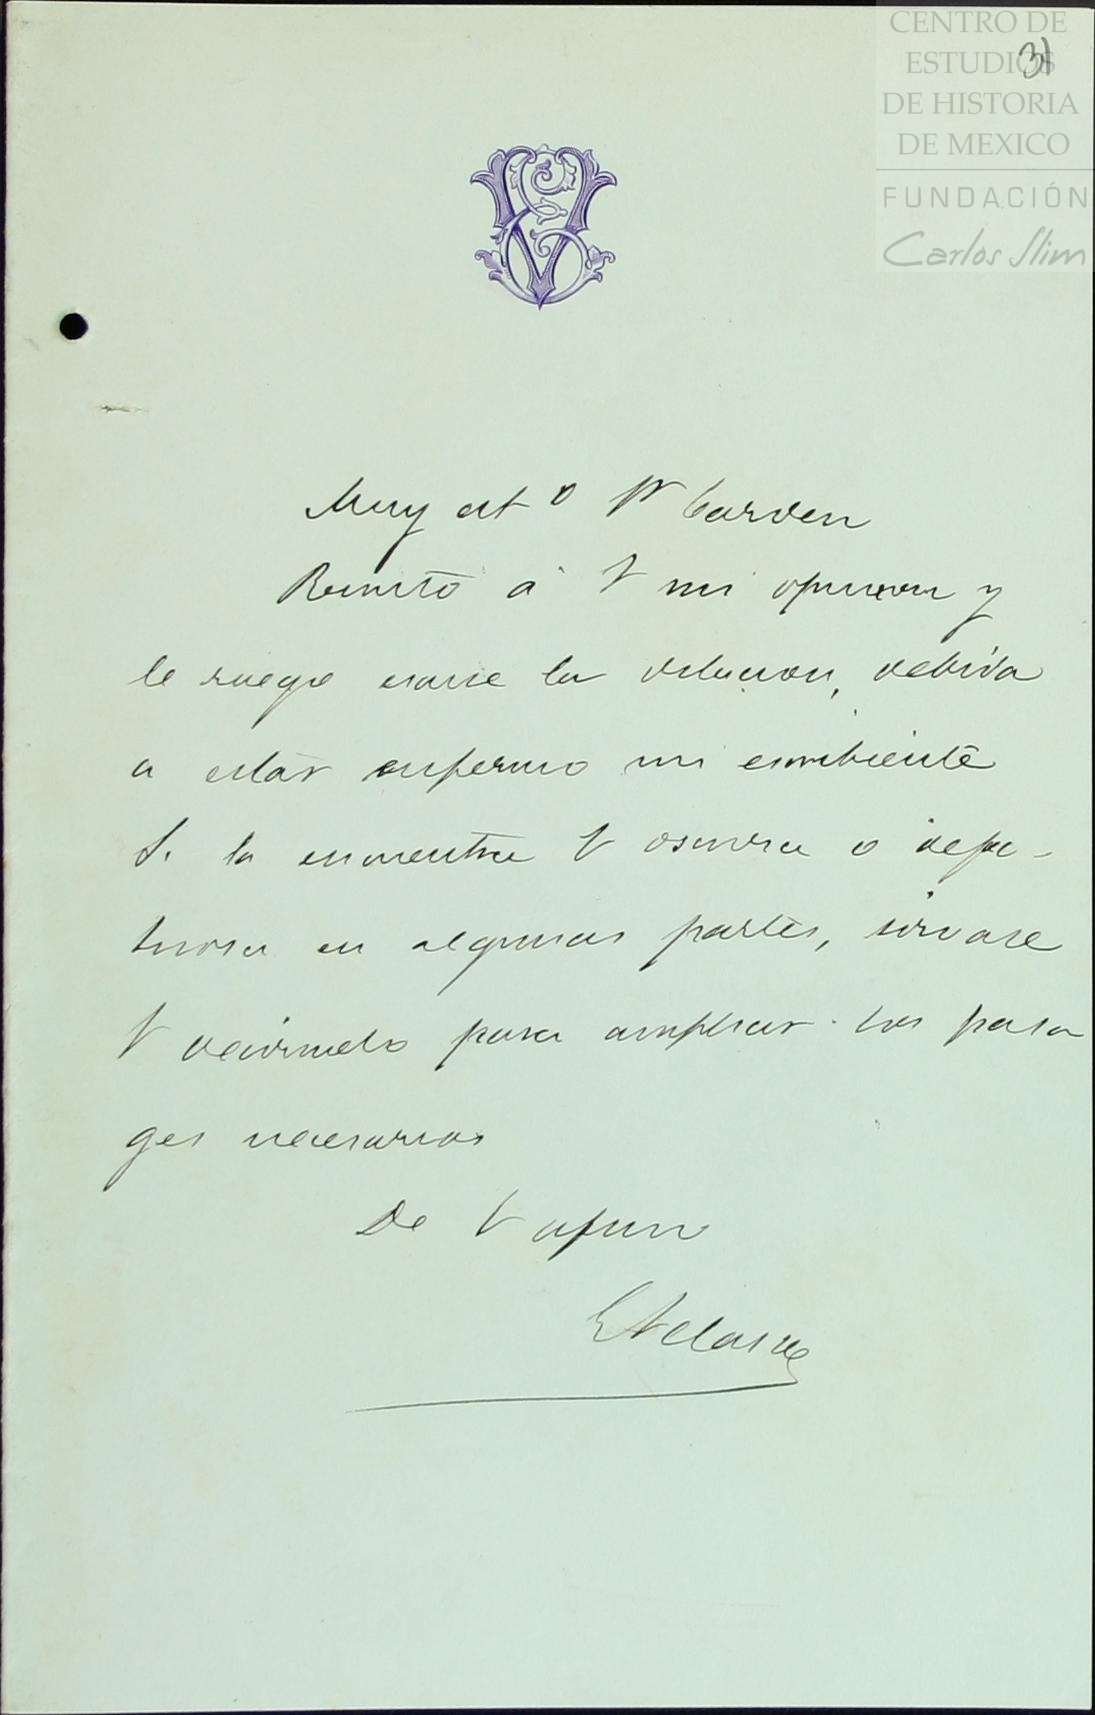 CENTRO DE
ESTUDIOS
DE HISTORIA
DE MEXICO
FUNDACIÓN
Carlos Slim
31
Muy att o Sr Carden
Remito á V mi opinion y
le ruego escuse la dilacion, debida
a estar enfermo mi escribiente
Si la encuentra V oscura o defec-
tuosa en algunas partes, sirvase
V decirmelo para ampliar los pasa
ges necesarios
De V afmo
E Velasco